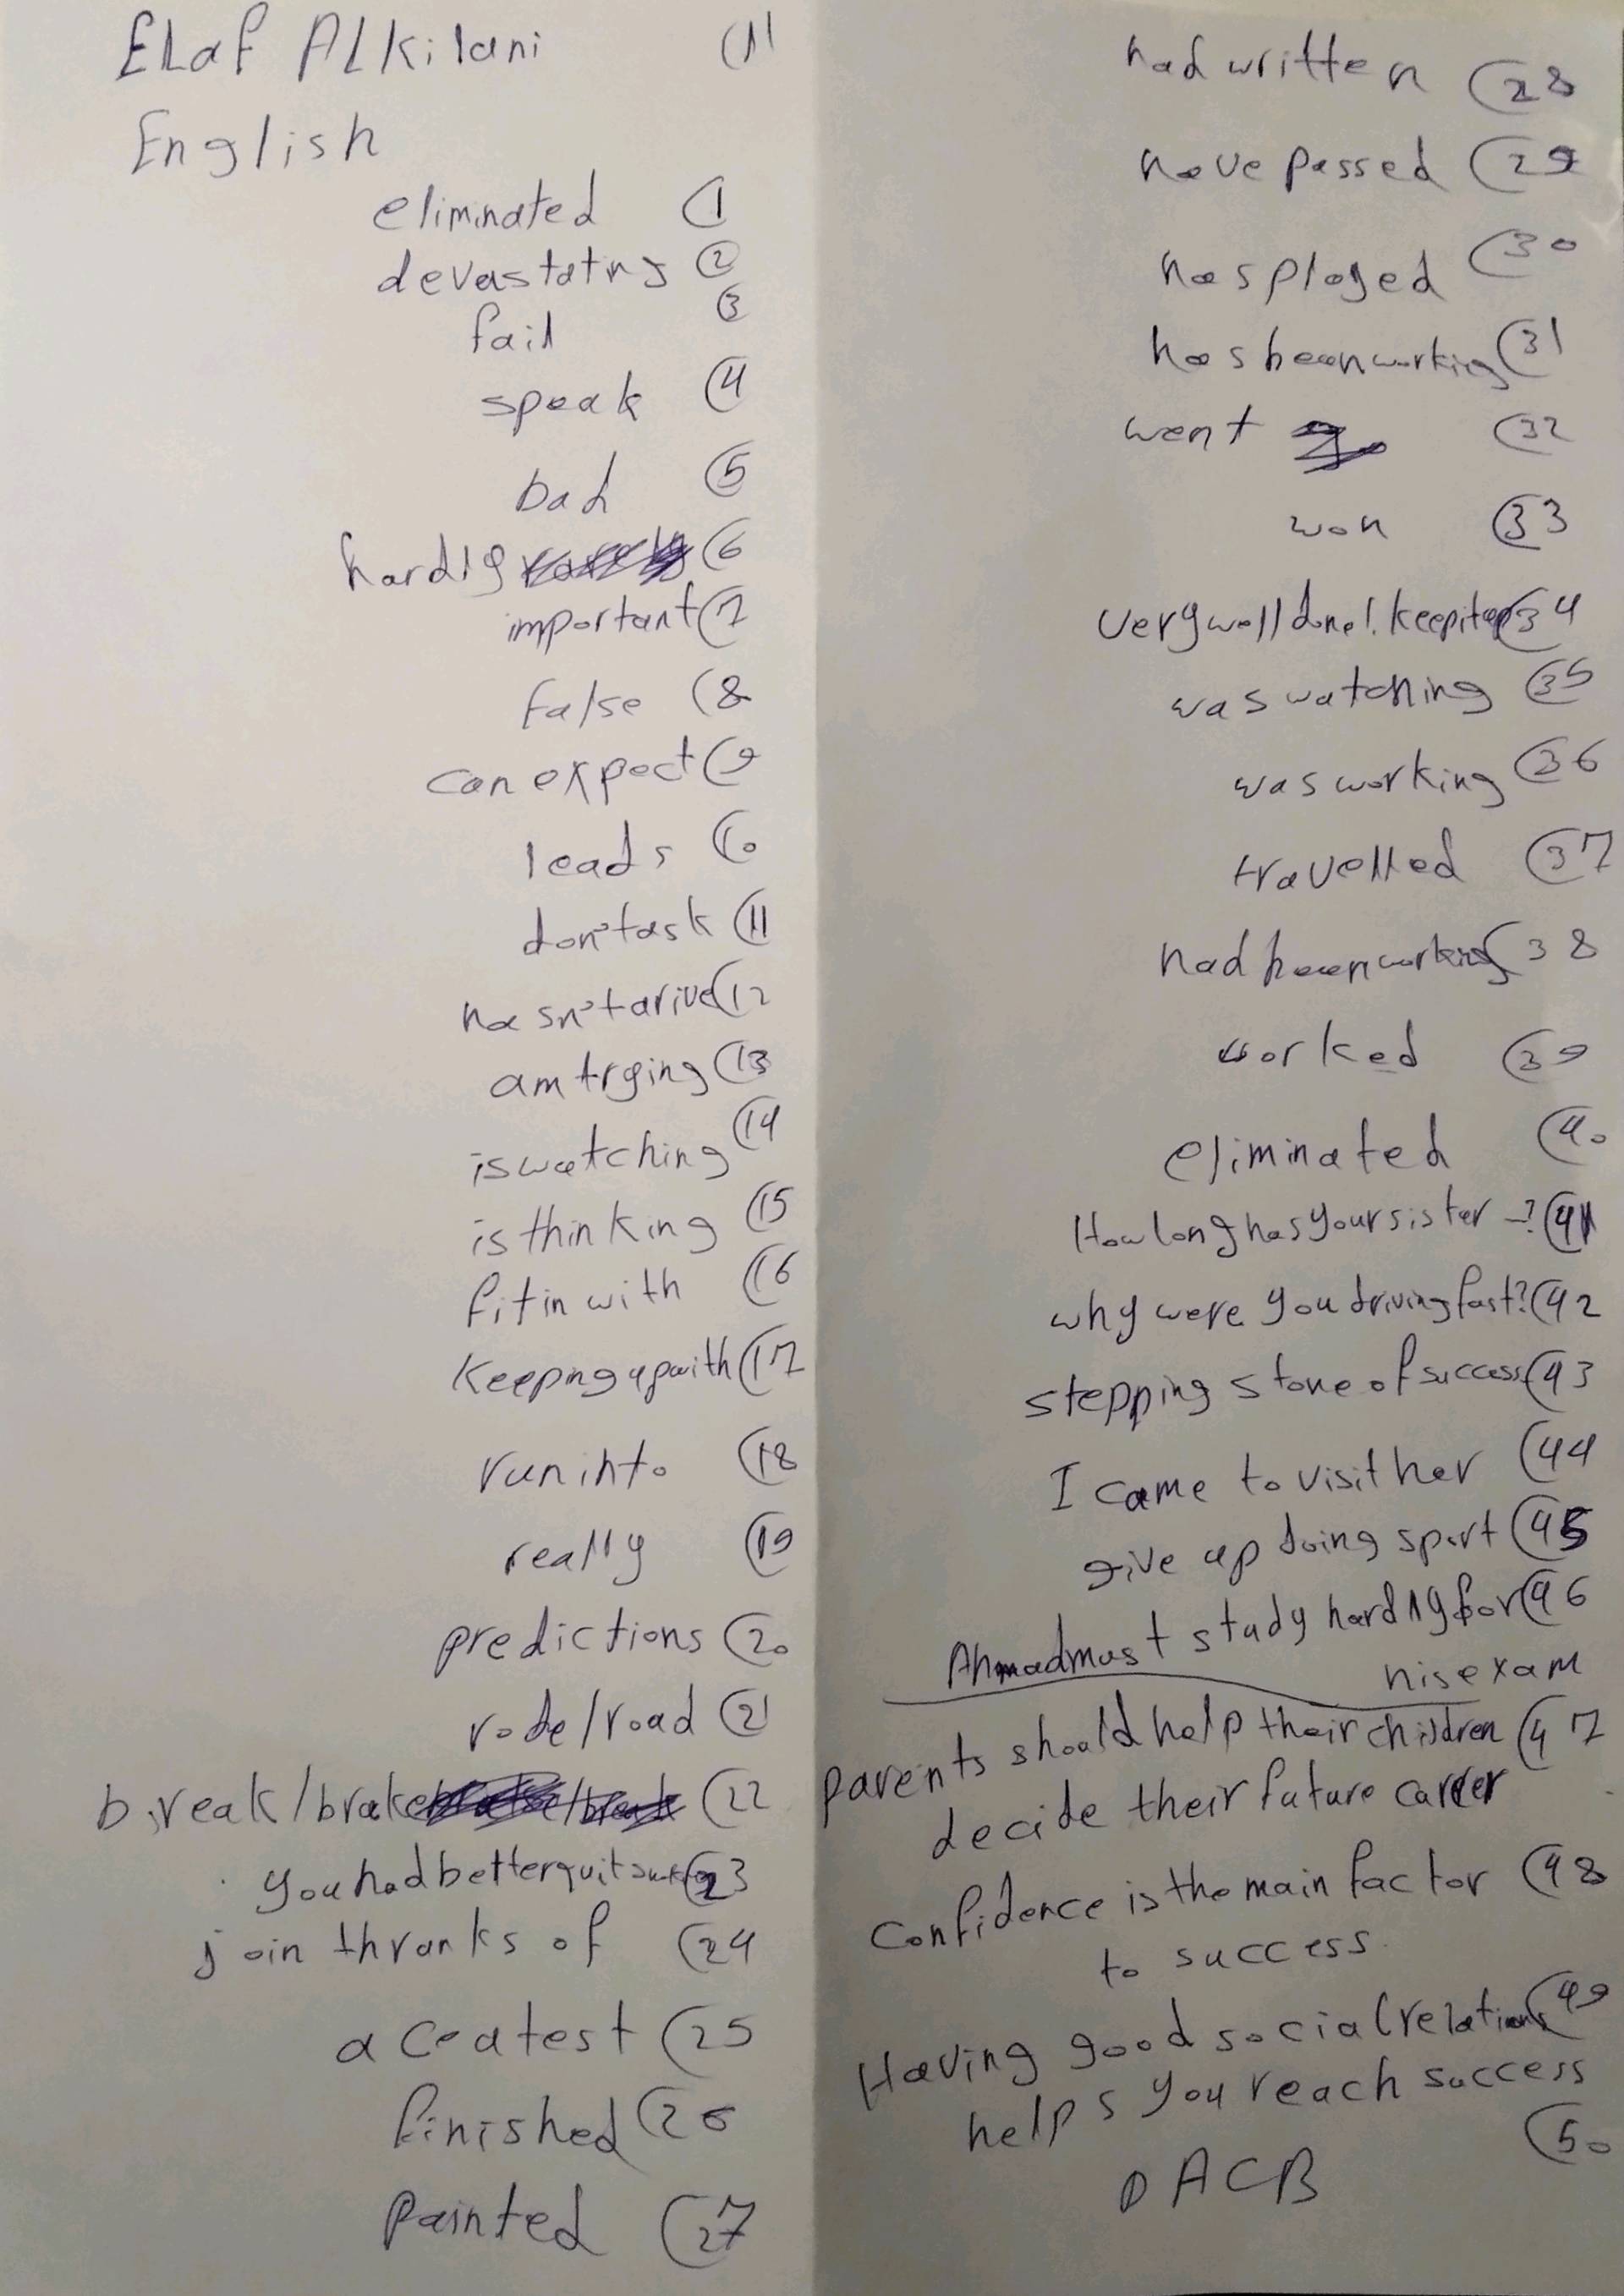 ELaf ALkilani (11
English
eliminated (1
devastatng (2)
fail (3
speak (4
bad (5
hardly (6
important (7
false (8
can expect (9
leads (10
don't ask (11
hasn't arived (12
am trying (13
is watching (14
is thinking (15
fit in with (16
Keepng up with (17
run into (18
really (19
predictions (20
rode/road (21
break/brake (22
you had better quit (23
join thranks of (24
ace a test (25
finished (26
painted (27
had written (28
have passed (29
has played (30
has been working (31
went (32
won (33
very well done!. keep it up (34
was watching (35
was working (36
travelled (37
had been working (38
worked (39
eliminated (40
How long has your sister -? (41
why were you driving fast? (42
stepping stone of success (43
I came to visit her (44
give up doing sport (45
Ahmad must study hardly for (46
his exam
parents should help their children (47
decide their future career
Confidence is the main factor (48
to success.
Having good social relations (49
helps you reach success
(50
DACB